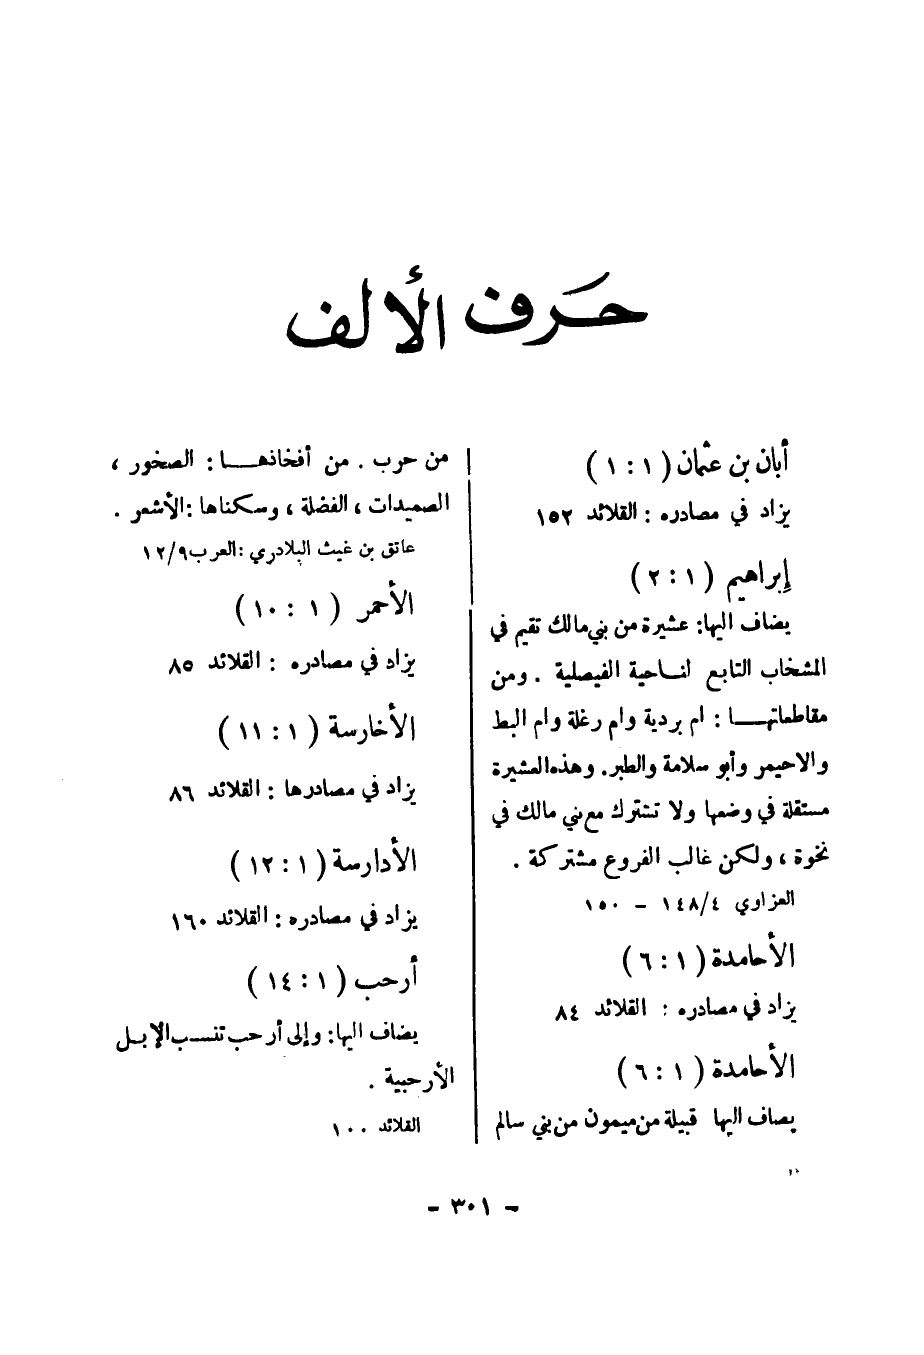 حرف الألف
أبان بن عثمان (١ : ١)
يزاد في مصادره : القلائد ١٥٢
إبراهيم (١ : ٢)
يضاف اليها : عشيرة من بني مالك تقيم في
المشخاب التابع لناحية الفيصلية . ومن
مقاطعاتها : ام بردية وام رغلة وام البط
والاحيمر وأبو سلامة والطبر . وهذه العشيرة
مستقلة في وضعها ولا تشترك مع بني مالك في
نخوة ، ولكن غالب الفروع مشتركة .
العزاوي ١٤٨/٤ - ١٥٠
الأحامدة (١ : ٦)
يزاد في مصادره : القلائد ٨٤
الأحامدة (١ : ٦)
يضاف اليها قبيلة من ميمون من بني سالم
من حرب . من أفخاذها : الصخور ،
الصميدات ، الفضلة ، وسكناها : الأشعر .
عاتق بن غيث البلادري : العرب ١٢/٩
الأحمر (١ : ١٠)
يزاد في مصادره : القلائد ٨٥
الأخارسة (١ : ١١)
يزاد في مصادرها : القلائد ٨٦
الأدارسة (١ : ١٢)
يزاد في مصادره : القلائد ١٦٠
أرحب (١ : ١٤)
يضاف اليها : وإلى أرحب تنسب الإبل
الأرحبية .
القلائد ١٠٠
- ٣٠١ -